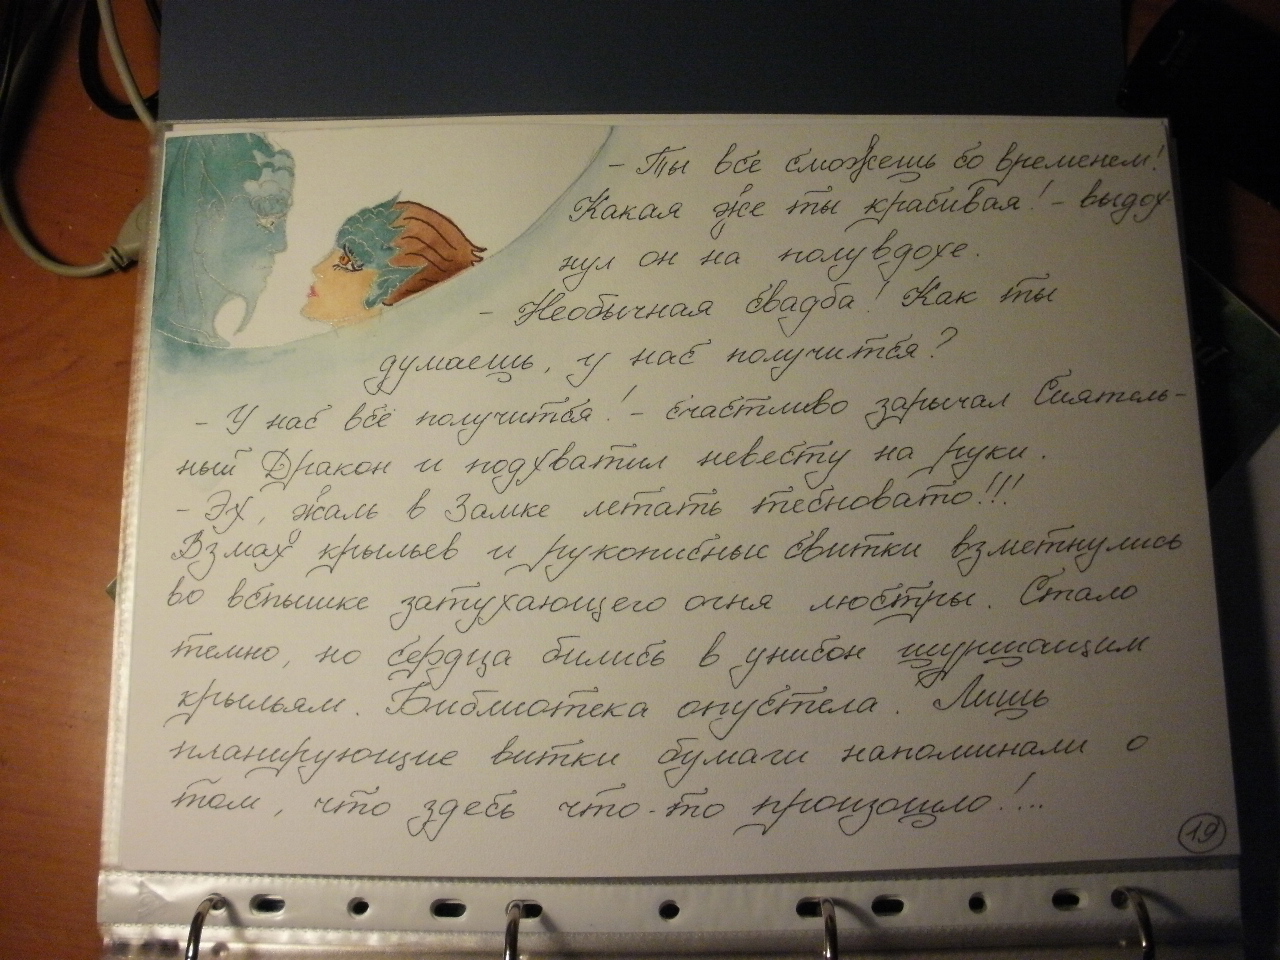 - Ты всё сможешь со временем!
Какая же ты красивая! - выдох-
нул он на полувдохе.
- Необычная свадьба! Как ты
думаешь, у нас получится?
- У нас всё получится! - счастливо зарычал Сиятель-
ный Дракон и подхватил невесту на руки.
- Эх, жаль в Замке летать тесновато!!!
Взмах крыльев и рукописные свитки взметнулись
во вспышке затухающего огня люстры. Стало
темно, но сердца бились в унисон шуршащим
крыльям. Библиотека опустела. Лишь
планирующие витки бумаги напоминали о
том, что здесь что-то произошло!...
19